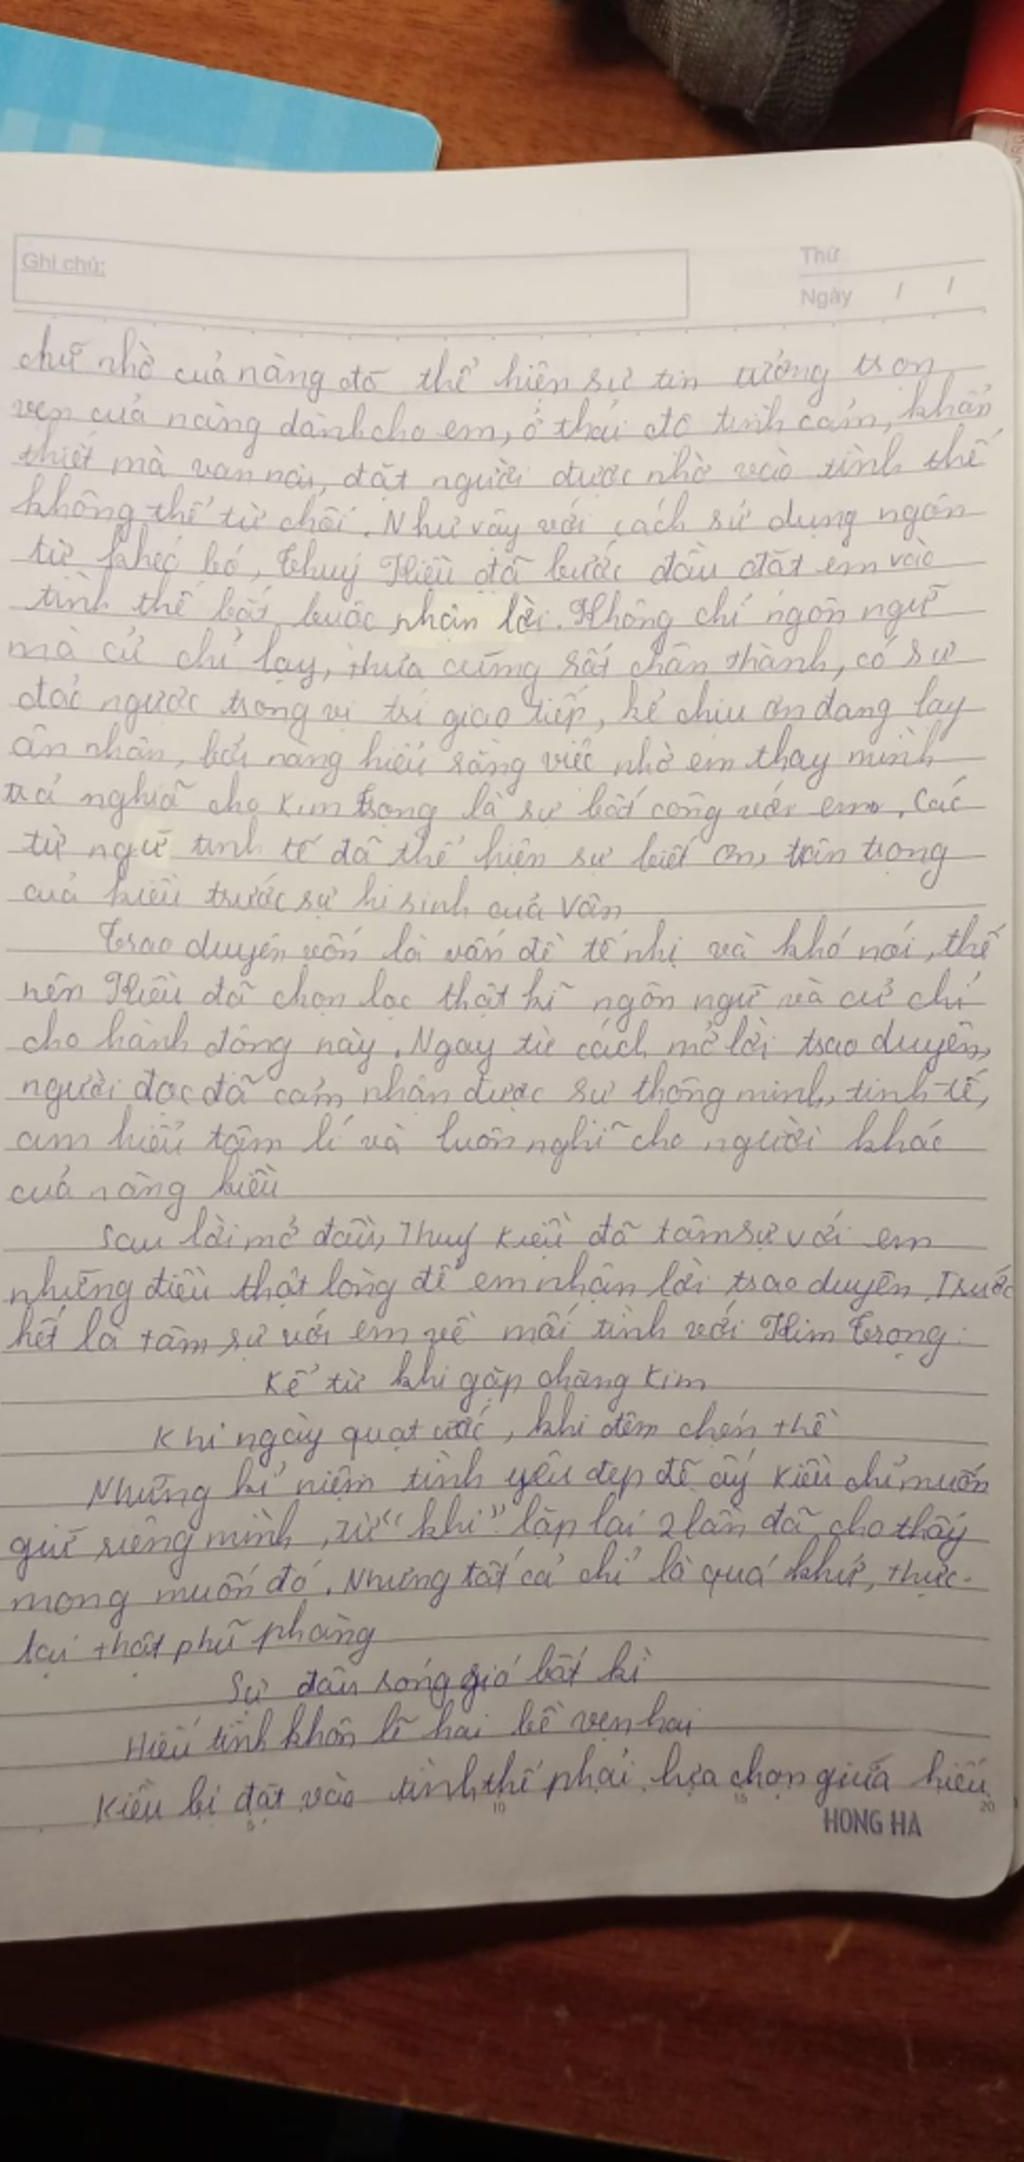 Ghi chú:
Thứ
Ngày / /
chữ nhờ của nàng đã thể hiện sự tin tưởng trọn
vẹn của nàng dành cho em, ở thái độ tình cảm, khẩn
thiết mà van nài, đặt người được nhờ vào tình thế
không thể từ chối. Như vậy với cách sử dụng ngôn
từ khéo léo, Thuý Kiều đã bước đầu đặt em vào
tình thế bắt buộc nhận lời. Không chỉ ngôn ngữ
mà cử chỉ lạy, thưa cũng rất chân thành, có sự
đảo ngược trong vị trí giao tiếp, kẻ chịu ơn đang lạy
ân nhân, bởi nàng hiểu rằng việc nhờ em thay mình
trả nghĩa cho Kim Trọng là sự bất công với em. Các
từ ngữ tinh tế đã thể hiện sự biết ơn, trân trọng
của kiều trước sự hi sinh của Vân
Trao duyên vốn là vấn đề tế nhị và khó nói, thế
nên Kiều đã chọn lọc thật kĩ ngôn ngữ và cử chỉ
cho hành động này. Ngay từ cách mở lời trao duyên,
người đọc đã cảm nhận được sự thông minh, tinh tế,
am hiểu tâm lí và luôn nghĩ cho người khác
của nàng kiều
Sau lời mở đầu, Thuý Kiều đã tâm sự với em
những điều thật lòng để em nhận lời trao duyên. Trước
hết là tâm sự với em về mối tình với Kim Trọng:
Kể từ khi gặp chàng Kim
Khi ngày quạt ước, khi đêm chén thề
Những kỉ niệm tình yêu đẹp đẽ ấy Kiều chỉ muốn
giữ riêng mình, từ "khi" lặp lại 2 lần đã cho thấy
mong muốn đó. Nhưng tất cả chỉ là quá khứ, thực
tại thật phũ phàng
Sự đâu sóng gió bất kì
Hiếu tình khôn lẽ hai bề vẹn hai
Kiều bị đặt vào tình thế phải lựa chọn giữa hiếu
5 10 15 20
HONG HA